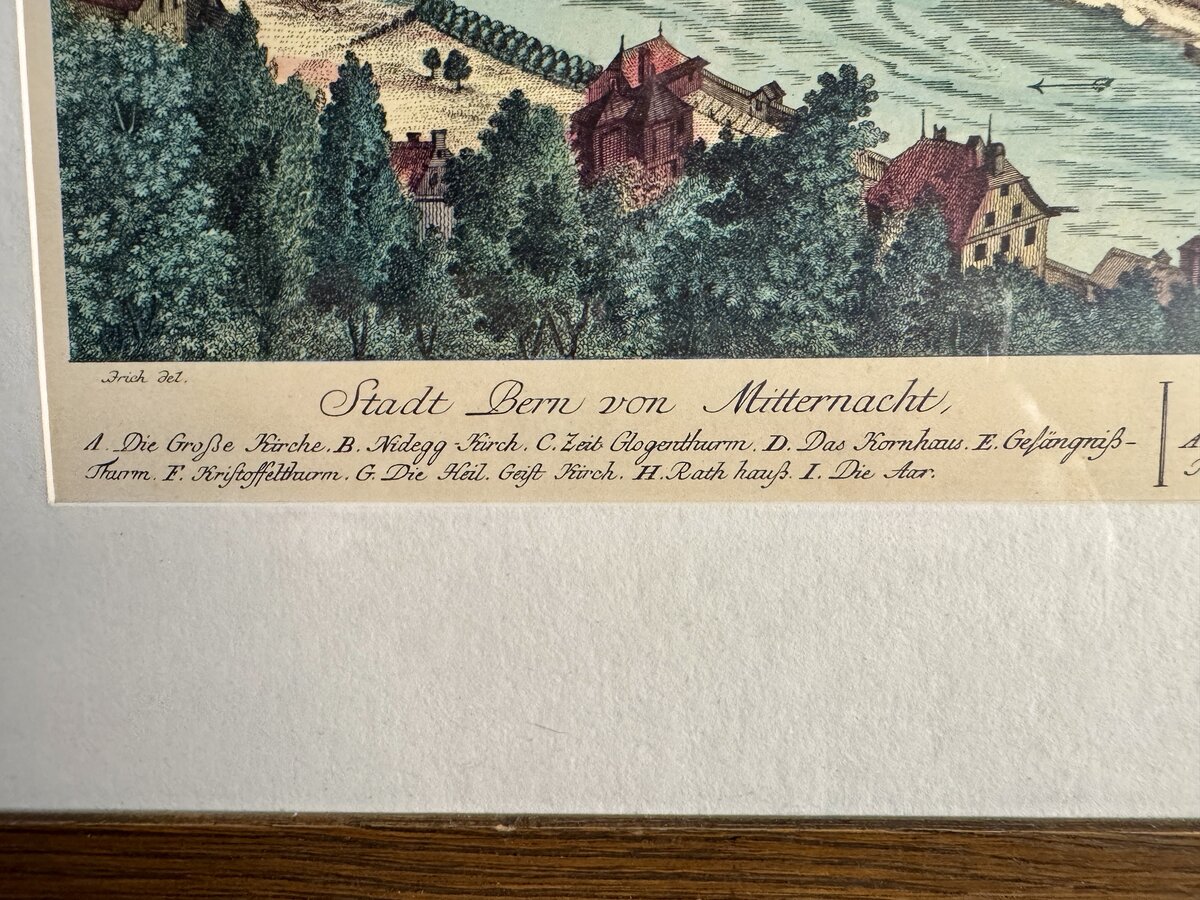 Brich del.
Stadt Bern von Mitternacht,
A. Die Große Kirche. B. Nidegg-Kirch. C. Zeit Glogenthurm. D. Das Kornhaus. E. Gefängniß-
Thurm. F. Kristoffelthurm. G. Die Heil. Geist Kirch. H. Rath hauß. I. Die Aar.